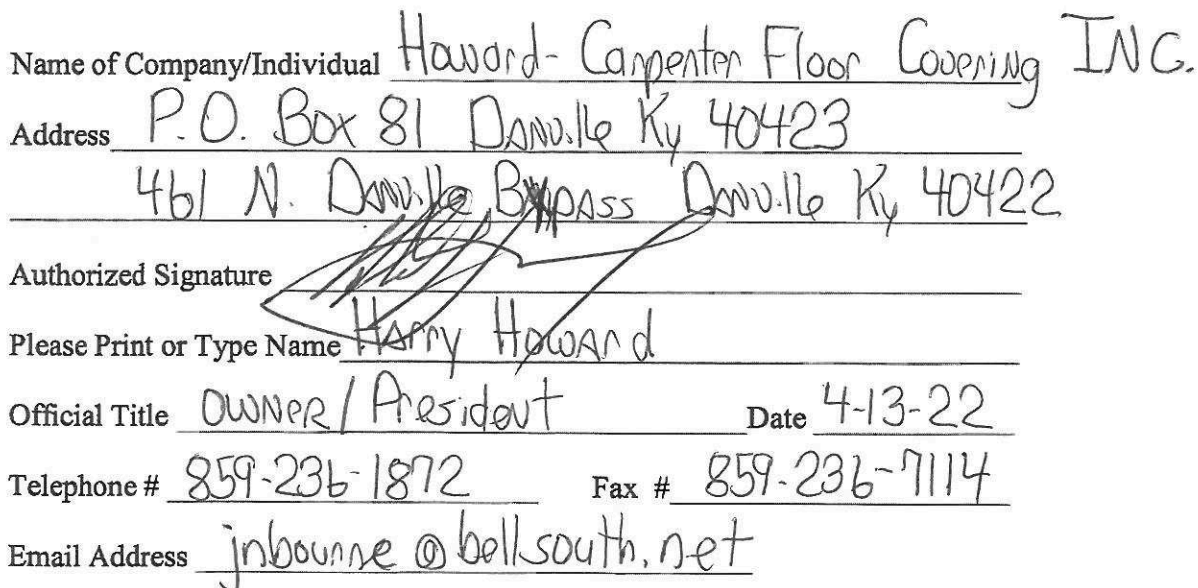 Name of Company/Individual Howard- Carpenter Floor Covering INC.
Address P.O. Box 81 Danville Ky 40423
461 N. Danville Bypass Danville Ky 40422
Authorized Signature
Please Print or Type Name Harry Howard
Official Title OWNER/President Date 4-13-22
Telephone # 859-236-1872 Fax # 859-236-7114
Email Address jnbourne@bellsouth.net